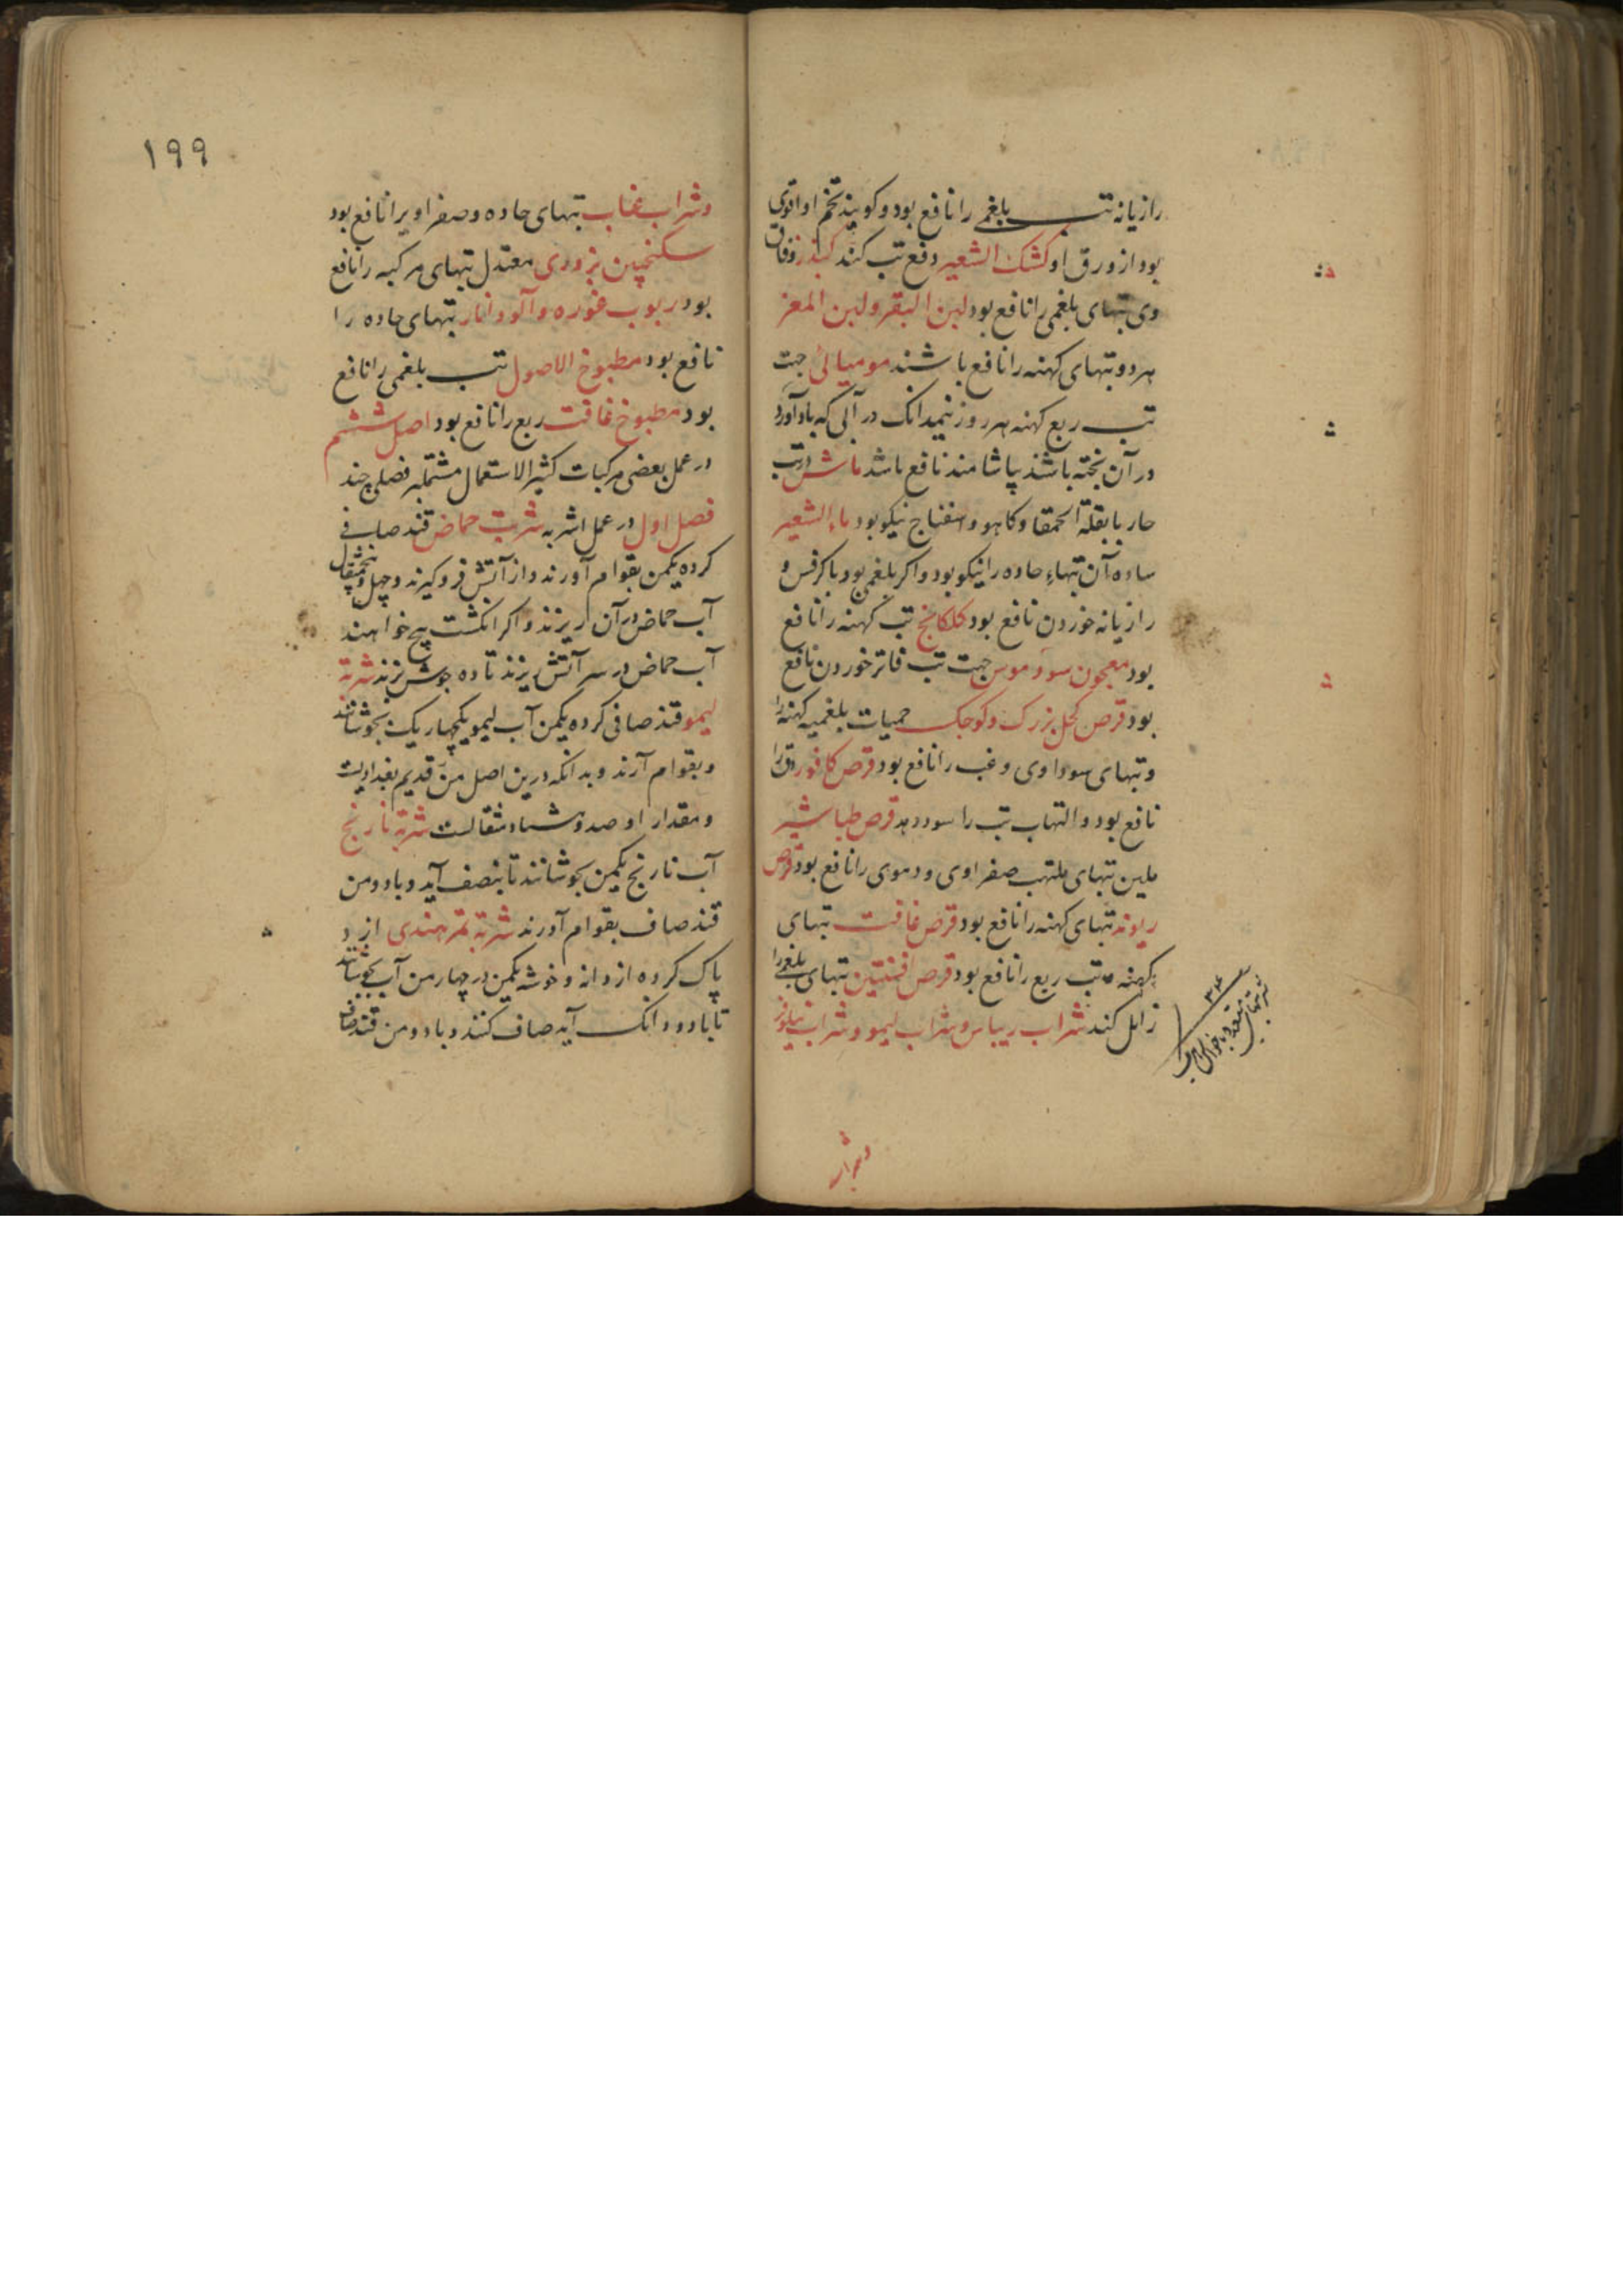 رازیانه تب بلغمی را نافع بود و کویند تخم او اقوی
بود از ورق او کشک الشعیر دفع تب کند
وی تبهای بلغمی را نافع بود لبن البقر و لبن المعز
هر دو تبهای کهنه را نافع باشند مومیائی جهت
تب ربع کهنه هر روز نیمدانک در آبی که بادآورد
در آن پخته باشند بیاشامند نافع باشد ماش در تب
حار با بقلة الحمقا و کاهو و اسفناج نیکو بود ماء الشعیر
ساده آن تبهاء حاده را نیکو بود و اکر بلغمی بود با کرفس و
رازیانه خوردن نافع بود کلکانج تب کهنه را نافع
بود معجون جهت تب فاتر خوردن نافع
بود قرص بزرک و کوچک حمیات بلغمیه کهنه را
و تبهای سوداوی و غب را نافع بود قرص کافور دق را
نافع بود و التهاب تب را سود دهد قرص طباشیر
ملین تبهای ملتهب صفراوی و دموی را نافع بود قرص
ریوند تبهای کهنه را نافع بود قرص غافت تبهای
کهنه و تب ربع را نافع بود قرص افسنتین تبهای بلغمی را
زایل کند شراب ریباس و شراب لیمو و شراب نیلوفر
و شراب
۱۹۹
و شراب عناب تبهای حاده و صفراویرا نافع بود
سکنجبین بزوری معتدل تبهای مرکبه را نافع
بود ربوب غوره و آلو و انار تبهای حاده را
نافع بود مطبوخ الاصول تب بلغمی را نافع
بود مطبوخ غافت ربع را نافع بود اصل ششم
در عمل بعضی مرکبات کثیر الاستعمال مشتمل بر فصلی چند
فصل اول در عمل اشربه شربت حماض قند صافی
کرده یکمن بقوام آورند و از آتش فروکیرند و چهل و پنجمثقال
آب حماض در آن ریزند و اکر انکشت پیچ خواهند
آب حماض در سر آتش ریزند تا ده جوش بزند شربة
لیمو قند صافی کرده یکمن آب لیمو یکچهاریک بجوشانند
و بقوام آرند و بدانکه درین اصل من قدیم بغدادیست
و مقدار او صد و هشتاد مثقالست شربة نارنج
آب نارنج یکمن بجوشانند تا بنصف آید و با دو من
قند صاف بقوام آورند شربة تمر هندی از و
پاک کرده از دانه و خوشه یکمن در چهار من آب بجوشانند
تا با دو دانک آید صاف کنند و با دو من قند صاف